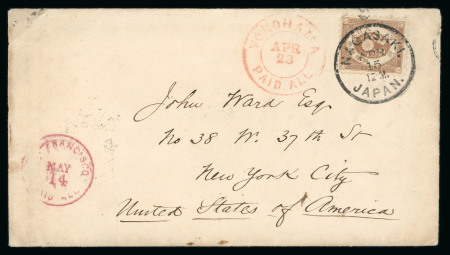 YOKOHAMA
APR
23
PAID ALL
NAGASAKI
APR
15
12 M.
JAPAN.
John Ward Esq.
No 38 W. 37th St
New York City
United States of America
FRANCISCO
MAY
14
PAID ALL